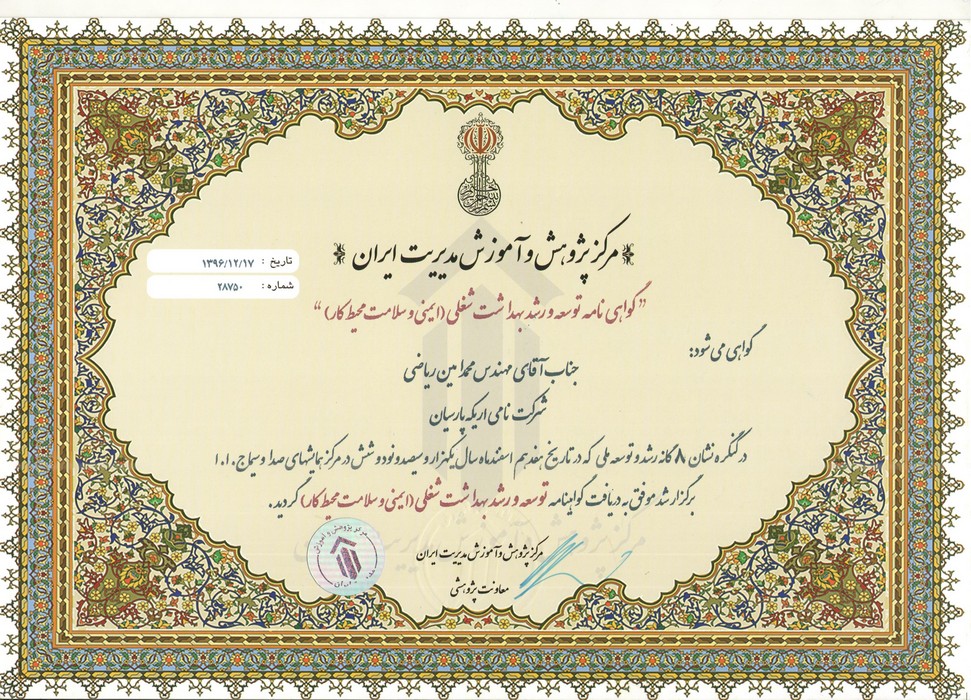 مرکز پژوهش و آموزش مدیریت ایران
تاریخ : ۱۳۹۶/۱۲/۱۷
شماره : ۲۸۷۵۰
"گواهی نامه توسعه و رشد بهداشت شغلی (ایمنی و سلامت محیط کار)"
گواهی می شود:
جناب آقای مهندس محمد امین ریاضی
شرکت نامی اریکه پارسیان
در کنگره نشان ۸ گانه رشد و توسعه ملی که در تاریخ هفدهم اسفند ماه سال یکهزار و سیصد و نود و شش در مرکز همایشهای صدا و سیما ج.ا.ا
برگزار شد موفق به دریافت گواهینامه توسعه و رشد بهداشت شغلی (ایمنی و سلامت محیط کار) گردید.
مرکز پژوهش و آموزش مدیریت ایران
معاونت پژوهشی